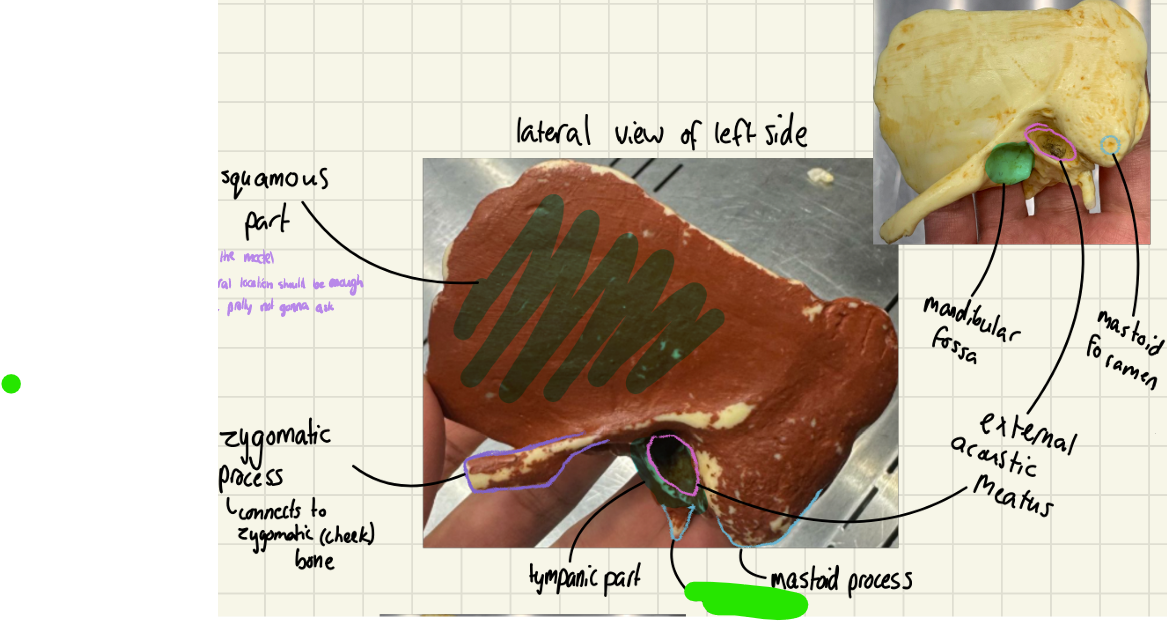 lateral view of left side
squamous
part
the model
ral location should be enough
prolly not gonna ask
mandibular
fossa
mastoid
foramen
external
acoustic
meatus
zygomatic
process
connects to
zygomatic (cheek)
bone
tympanic part
mastoid process